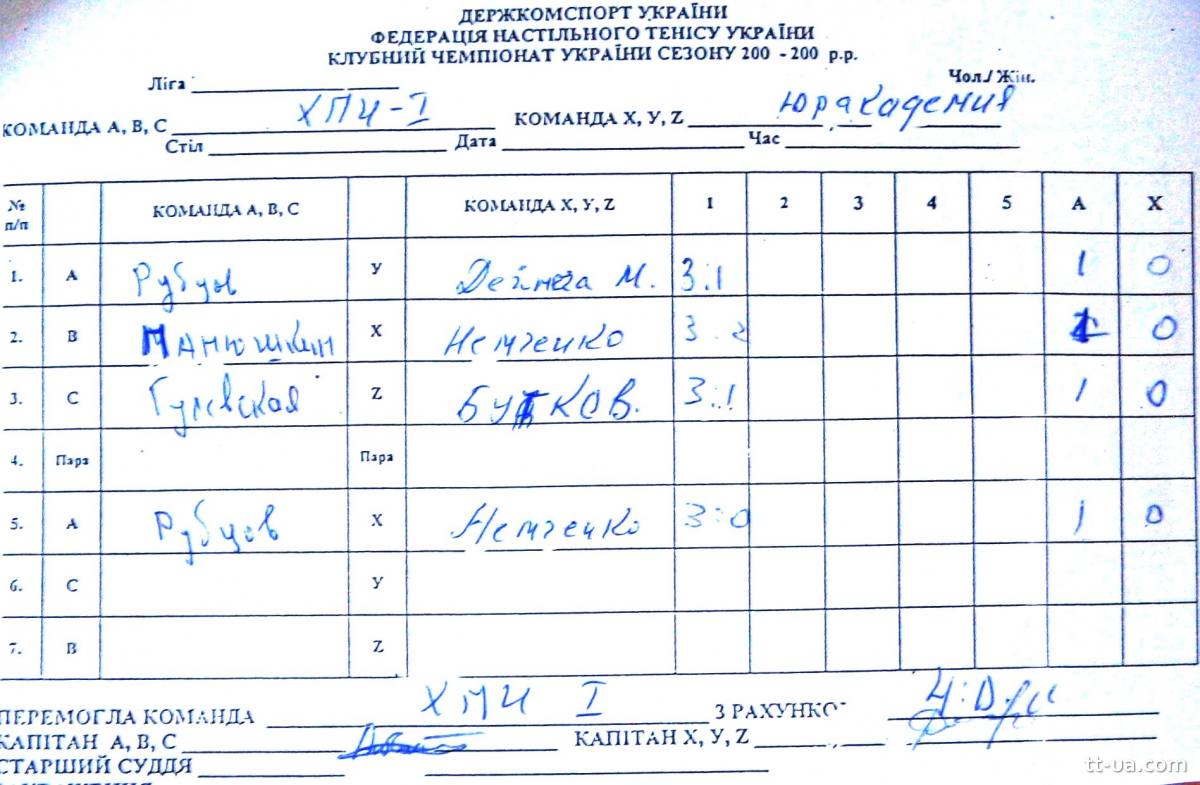 ДЕРЖКОМСПОРТ УКРАЇНИ
ФЕДЕРАЦІЯ НАСТІЛЬНОГО ТЕНІСУ УКРАЇНИ
КЛУБНИЙ ЧЕМПІОНАТ УКРАЇНИ СЕЗОНУ 200 - 200 р.р.
Ліга Чол./ Жін.
КОМАНДА А, В, С ХПИ-I КОМАНДА X, У, Z Юракадемия
Стіл Дата Час
№ п/п КОМАНДА А, В, С КОМАНДА X, У, Z 1 2 3 4 5 А X
1. А Рубцов У Дейнега М. 3:1 1 0
2. В МАНЮШКИН X Немченко 3:2 1 0
3. С Гулевская Z 3:1 1 0
4. Пара Пара
5. А Рубцов X Немченко 3:0 1 0
6. С У
7. В Z
ПЕРЕМОГЛА КОМАНДА ХПИ I З РАХУНКО 4:0
КАПІТАН А, В, С КАПІТАН X, У, Z
СТАРШИЙ СУДДЯ
tt-ua.com